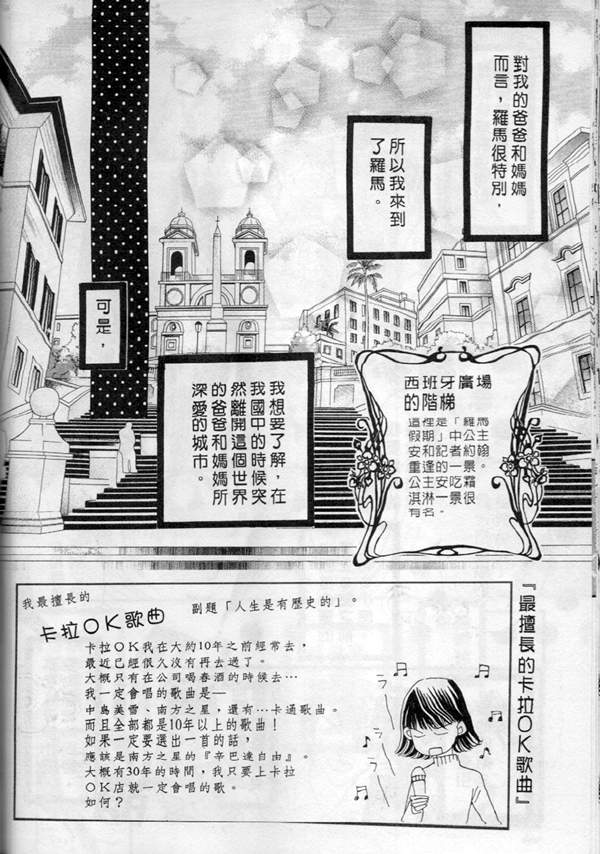 對我的爸爸和媽媽
而言，羅馬很特別，
所以我來到
了羅馬。
可是，
我想要了解，在
我國中的時候突
然離開這個世界
的爸爸和媽媽所
深愛的城市。
西班牙廣場
的階梯
這裡是「羅馬
假期」中公主
安和記者約翰
重逢的一景。
公主安吃霜
淇淋一景很
有名。
『最擅長的卡拉OK歌曲』
我最擅長的
卡拉OK歌曲
副題「人生是有歷史的」。
卡拉OK我在大約10年之前經常去，
最近已經很久沒有再去過了。
大概只有在公司喝春酒的時候去…
我一定會唱的歌曲是—
中島美雪、南方之星，還有…卡通歌曲。
而且全部都是10年以上的歌曲！
如果一定要選出一首的話，
應該是南方之星的『辛巴達自由』。
大概有30年的時間，我只要上卡拉
OK店就一定會唱的歌。
如何？